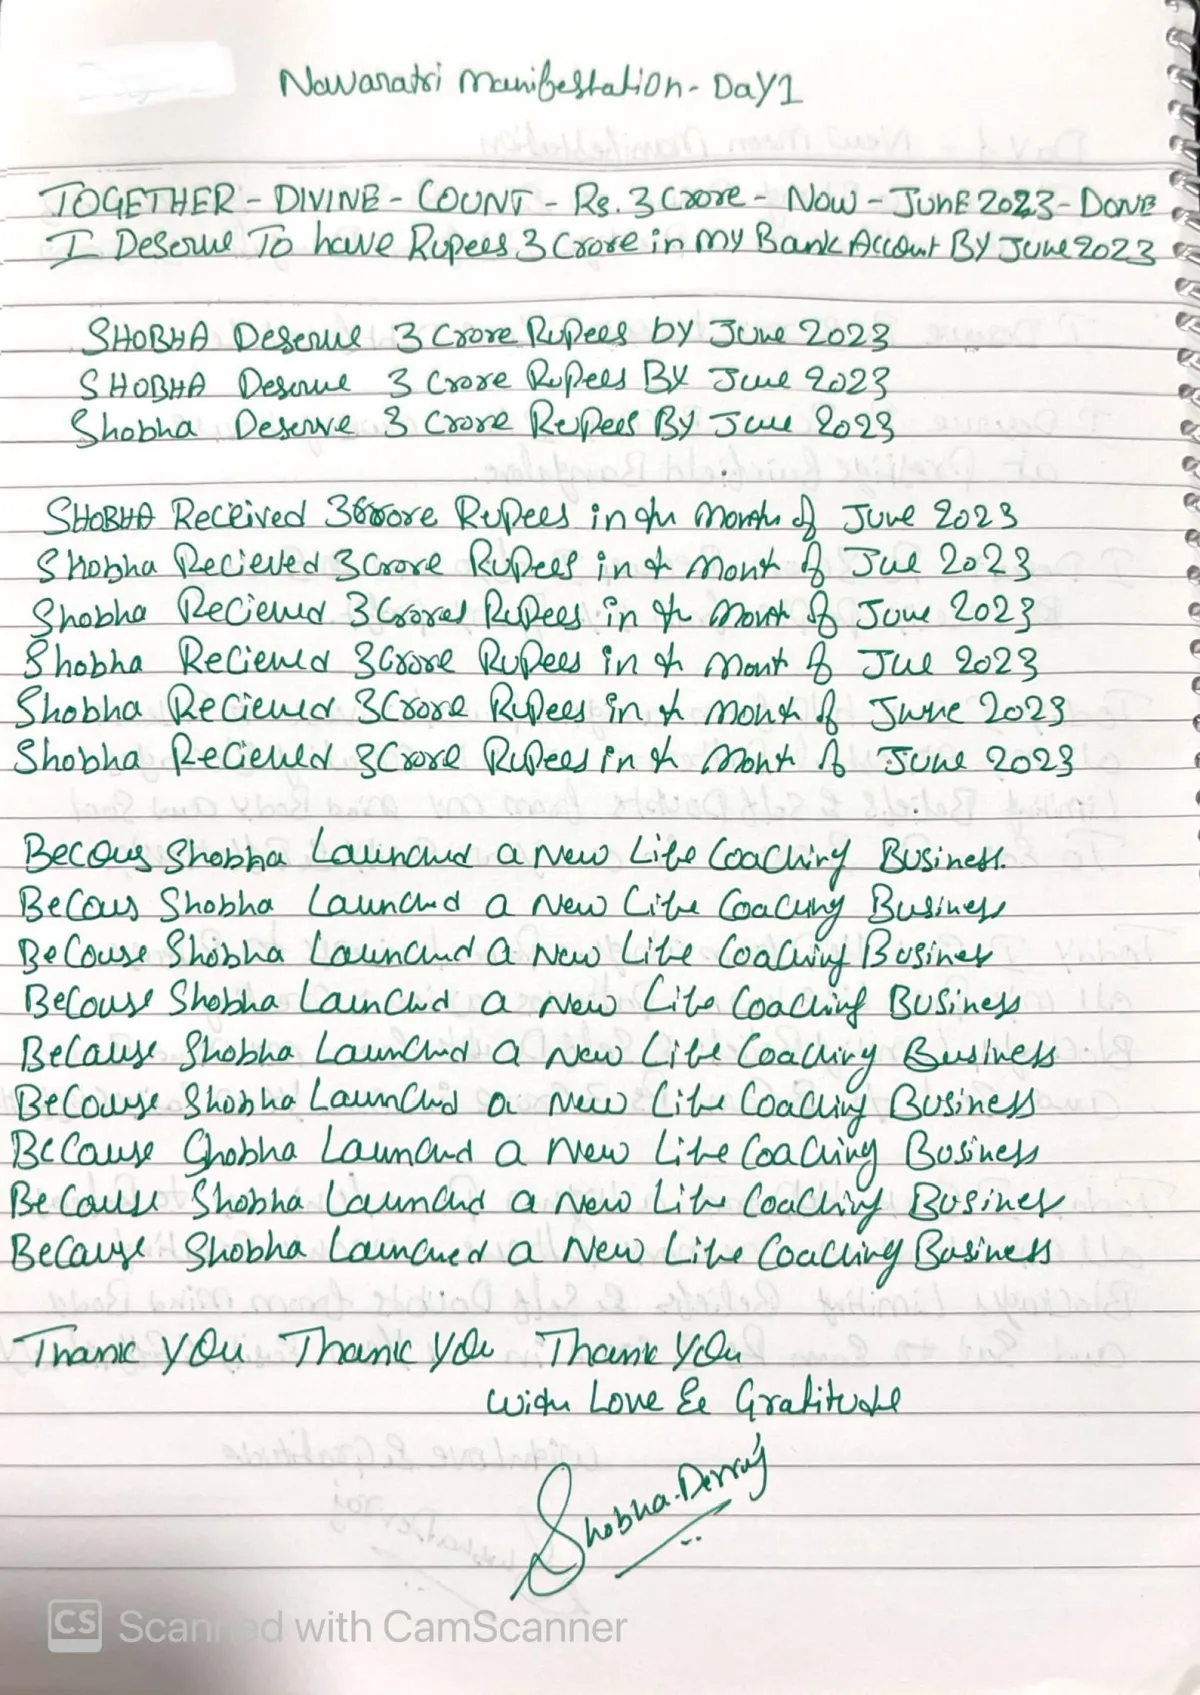 Nawaratri Manifestation - Day 1
TOGETHER - DIVINE - COUNT - Rs. 3 Crore - Now - JUNE 2023 - DONE
I Deserve To have Rupees 3 Crore in my Bank Account By June 2023
SHOBHA Deserve 3 Crore Rupees by June 2023
SHOBHA Deserve 3 Crore Rupees By June 2023
Shobha Deserve 3 Crore Rupees By June 2023
SHOBHA Received 3 Crore Rupees in the Month of June 2023
Shobha Recieved 3 Crore Rupees in th Month of Jue 2023
Shobha Recieved 3 Crores Rupees in th Month of June 2023
Shobha Recieved 3 Crore Rupees in th Mont of Jue 2023
Shobha Recieved 3 Crore Rupees in th Month of June 2023
Shobha Recieved 3 Crore Rupees in th Month of June 2023
Becous Shobha Launched a New Life Coaching Business.
Becous Shobha Launched a New Life Coaching Business
Becouse Shobha Launched a New Life Coaching Business
Becouse Shobha Launched a New Life Coaching Business
Because Shobha Launched a New Life Coaching Business
Because Shobha Launched a New Life Coaching Business
Because Shobha Launched a New Life Coaching Business
Because Shobha Launched a New Life Coaching Business
Because Shobha Launched a New Life Coaching Business
Thank you Thank you Thank you
With Love & Gratitude
Shobha Derraj
CS Scanned with CamScanner